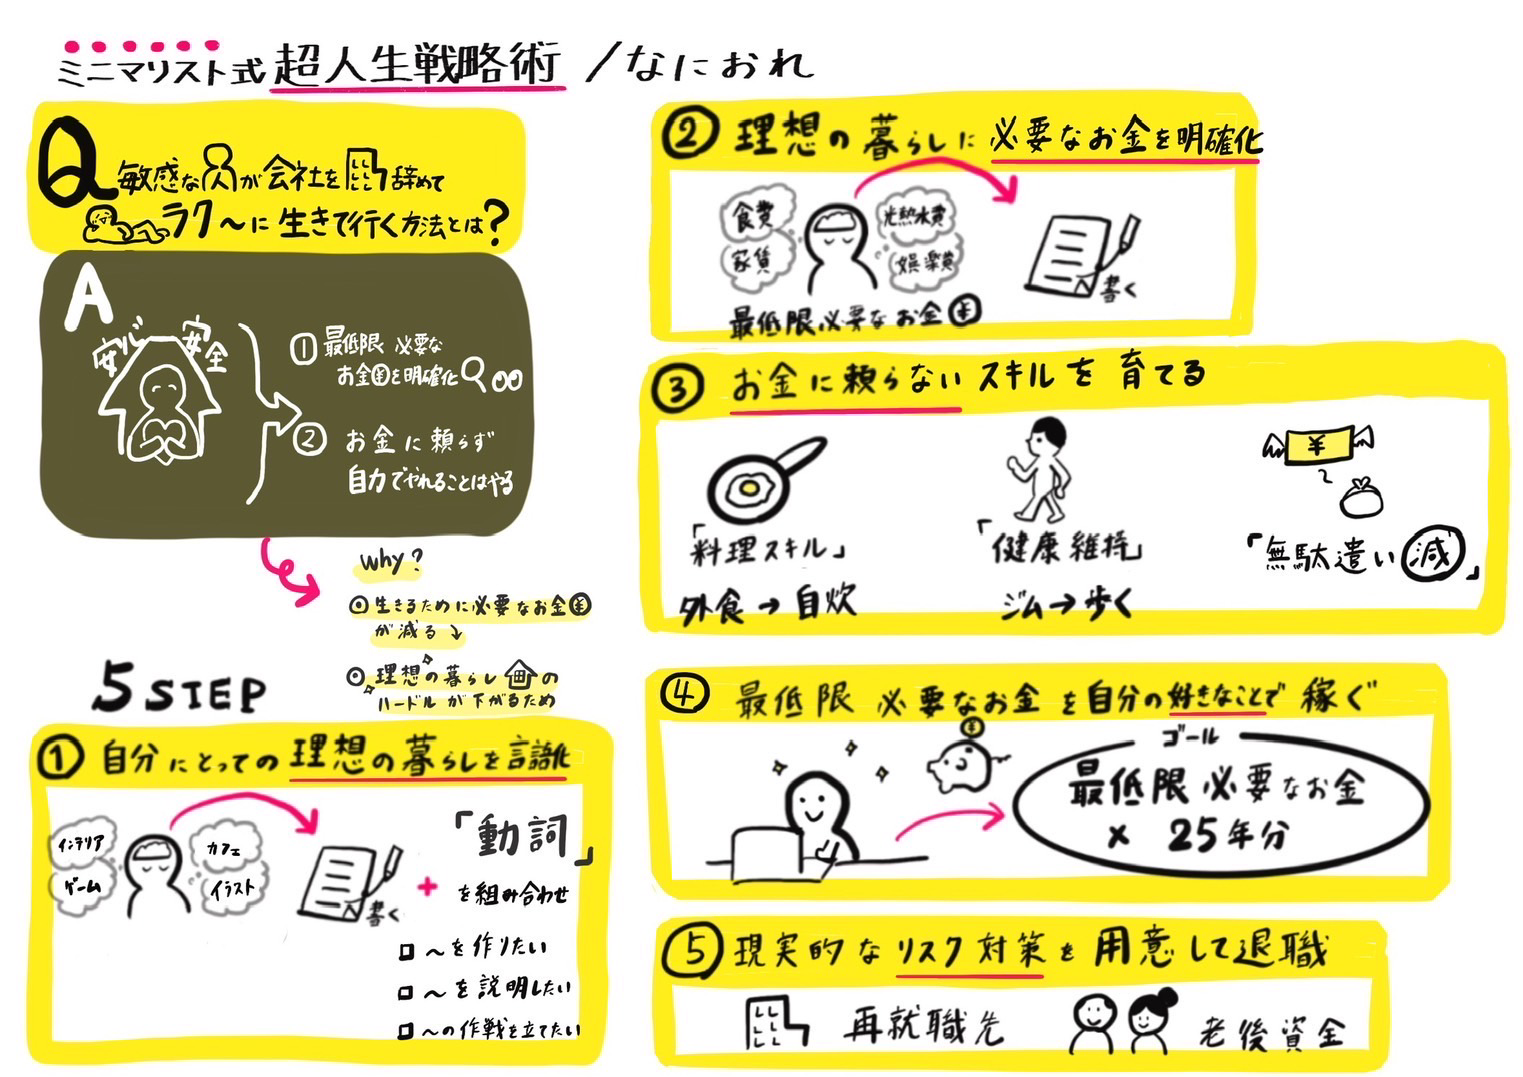 ミニマリスト式 超人生戦略術 / なにおれ
Q 敏感な人が会社を辞めて
ラク〜に生きて行く方法とは?
A
安心 安全
① 最低限 必要な
お金¥を明確化
② お金に頼らず
自力でやれることはやる
why?
◎ 生きるために必要なお金¥
が減る↓
◎ 理想の暮らしの
ハードルが下がるため
5 STEP
① 自分にとっての理想の暮らしを言語化
インテリア
ゲーム
カフェ
イラスト
書く
+
「動詞」
を組み合わせ
□ 〜を作りたい
□ 〜を説明したい
□ 〜の作戦を立てたい
② 理想の暮らしに必要なお金を明確化
食費
家賃
光熱水費
娯楽費
書く
最低限必要なお金¥
③ お金に頼らないスキルを育てる
¥
「料理スキル」
外食→自炊
「健康維持」
ジム→歩く
「無駄遣い減」
④ 最低限 必要なお金を自分の好きなことで稼ぐ
¥
ゴール
最低限必要なお金
× 25年分
⑤ 現実的なリスク対策を用意して退職
再就職先
老後資金